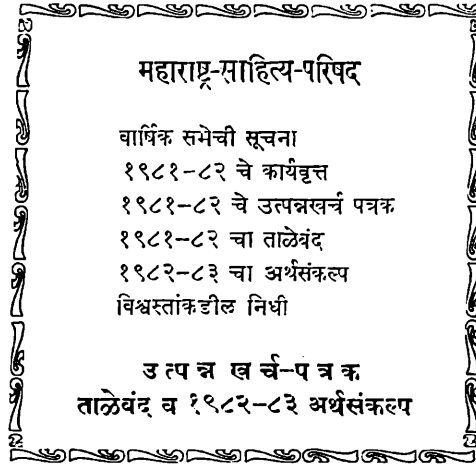 महाराष्ट्र-साहित्य-परिषद
वार्षिक सभेची सूचना
१९८१-८२ चे कार्यवृत्त
१९८१-८२ चे उत्पन्नखर्च पत्रक
१९८१-८२ चा ताळेबंद
१९८२-८३ चा अर्थसंकल्प
विश्वस्तांकडील निधी
उत्पन्न खर्च-पत्रक
ताळेबंद व १९८२-८३ अर्थसंकल्प